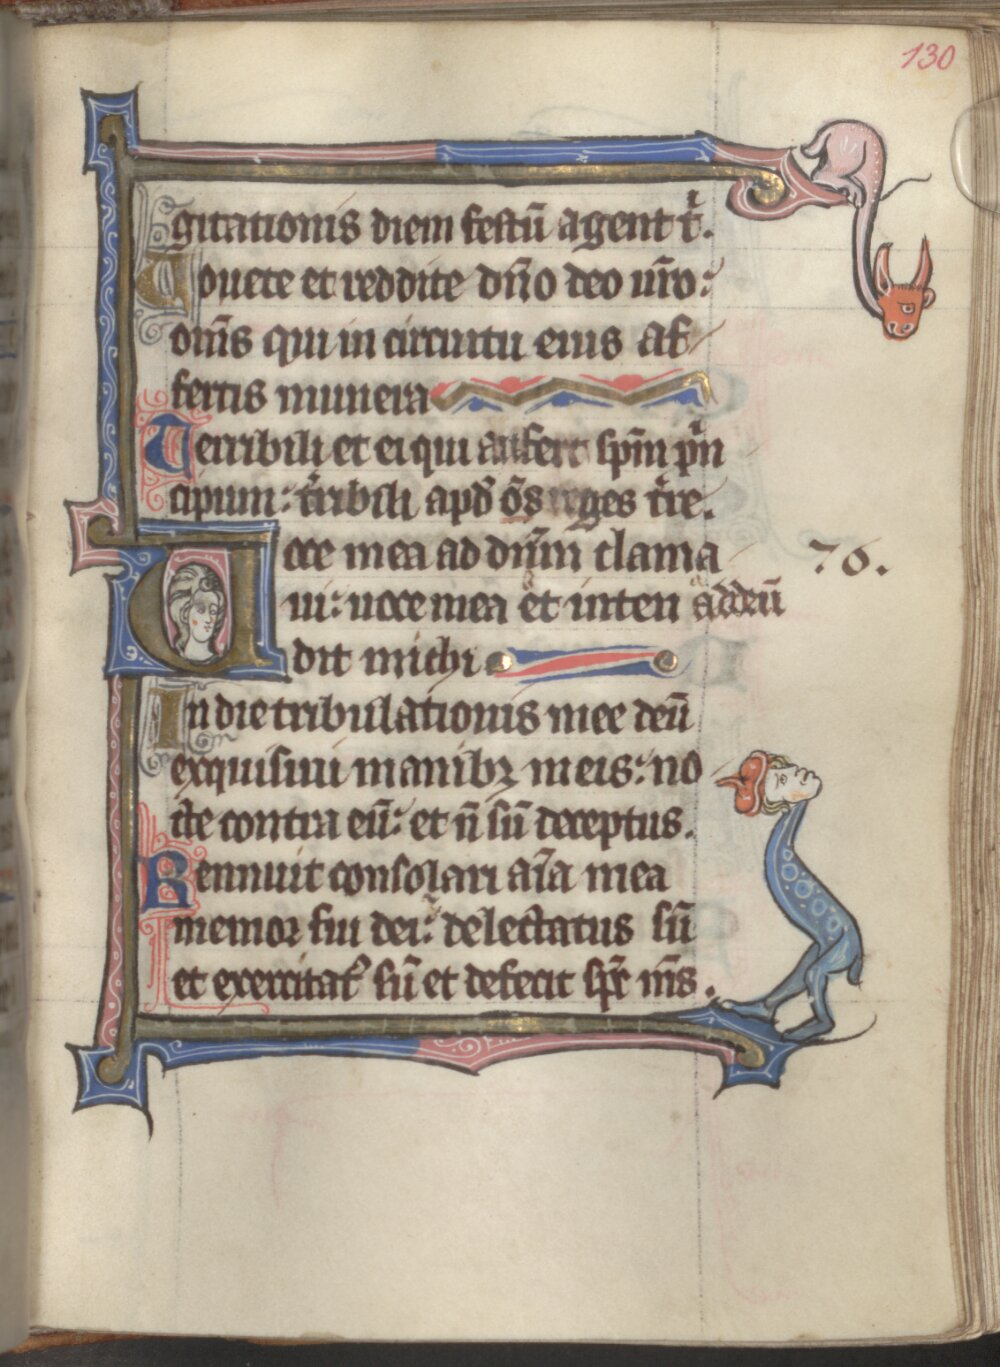 130
gitationis diem festū agent t̉.
Uouete et reddite dn̄o deo ur̄o:
om̄s qui in circuitu eius af
fertis munera
Terribili et ei qui aufert spm̄ pn̉
cipum: t̉ribili apd̄ om̄s reges tr̄e.
Uoce mea ad dn̄m clama 76.
ui: uoce mea et inten ad deū
dit michi
In die tribulationis mee deū
exquisiui manibꝫ meis: no
cte contra eū: et n̄ sū deceptus.
Rennuit consolari aīa mea
memor fui dei: delectatus sū
et exercitatꝰ sū et defecit spr̄ ms̄.